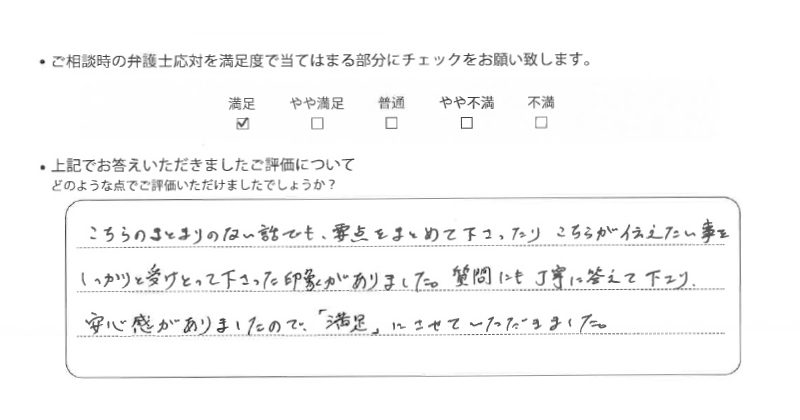 • ご相談時の弁護士応対を満足度で当てはまる部分にチェックをお願い致します。
満足 やや満足 普通 やや不満 不満
☑ ☐ ☐ ☐ ☐
• 上記でお答えいただきましたご評価について
どのような点でご評価いただけましたでしょうか？
こちらのまとまりのない話でも、要点をまとめて下さったり こちらが伝えたい事を
しっかりと受けとって下さった印象がありました。質問にも丁寧に答えて下さり、
安心感がありましたので、「満足」にさせていただきました。